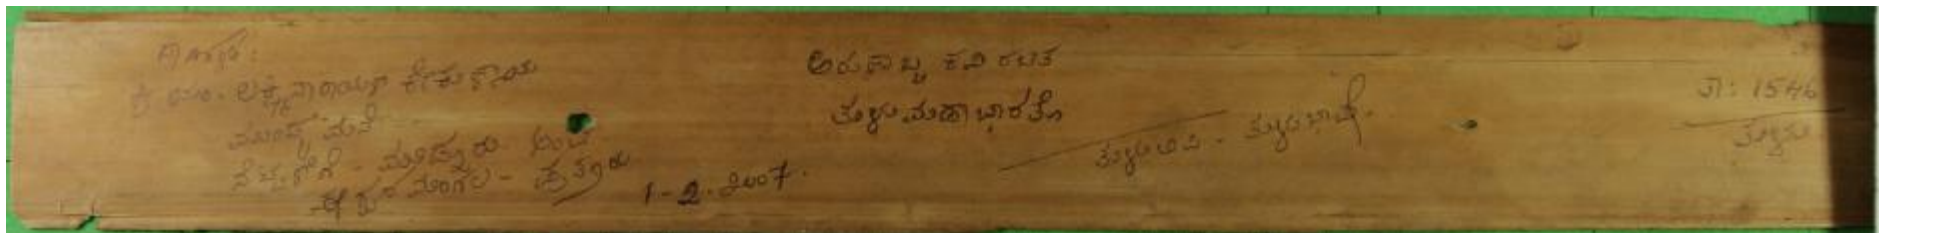 ದಾನಿಗಳು:
ಶ್ರೀ ಯಂ. ಲಕ್ಷ್ಮೀನಾರಾಯಣ ಕೇಕುಣ್ಣಾಯ
ಮುಂಡ್ಯ ಮನೆ
ನೆಟ್ಟಣಿಗೆ - ಮೂಡ್ನೂರು ಅಂಚೆ
ಈಶ್ವರಮಂಗಲ - ಪುತ್ತೂರು
1-2-2007.
ಅರುಣಾಬ್ಜ ಕವಿ ರಚಿತ
ತುಳು ಮಹಾಭಾರತೊ
ತುಳು ಲಿಪಿ - ತುಳು ಭಾಷೆ.
ತಾ: 1546
ತುಳು